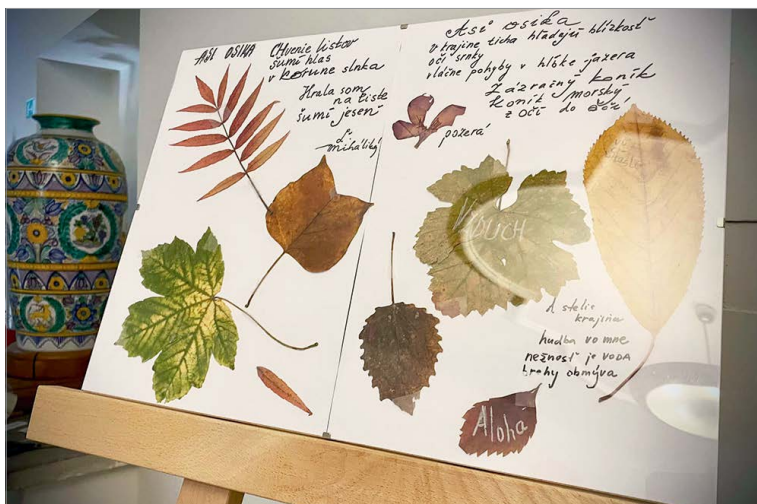 Asi OSIKA
CHvenie listov
šumí hlas
v korune slnka
Hrala som
na liste
šumí jeseň
Asi osika
v krajine ticha hľadajú blízkosť
oči srnky
vláčne pohyby v hĺbke jazera
Zázračný koník
koník morský
z očí do očí
pozerá
VZDUCH
krajina
hudba vo mne
nežnosť je VODA
brehy obmýva
Aloha